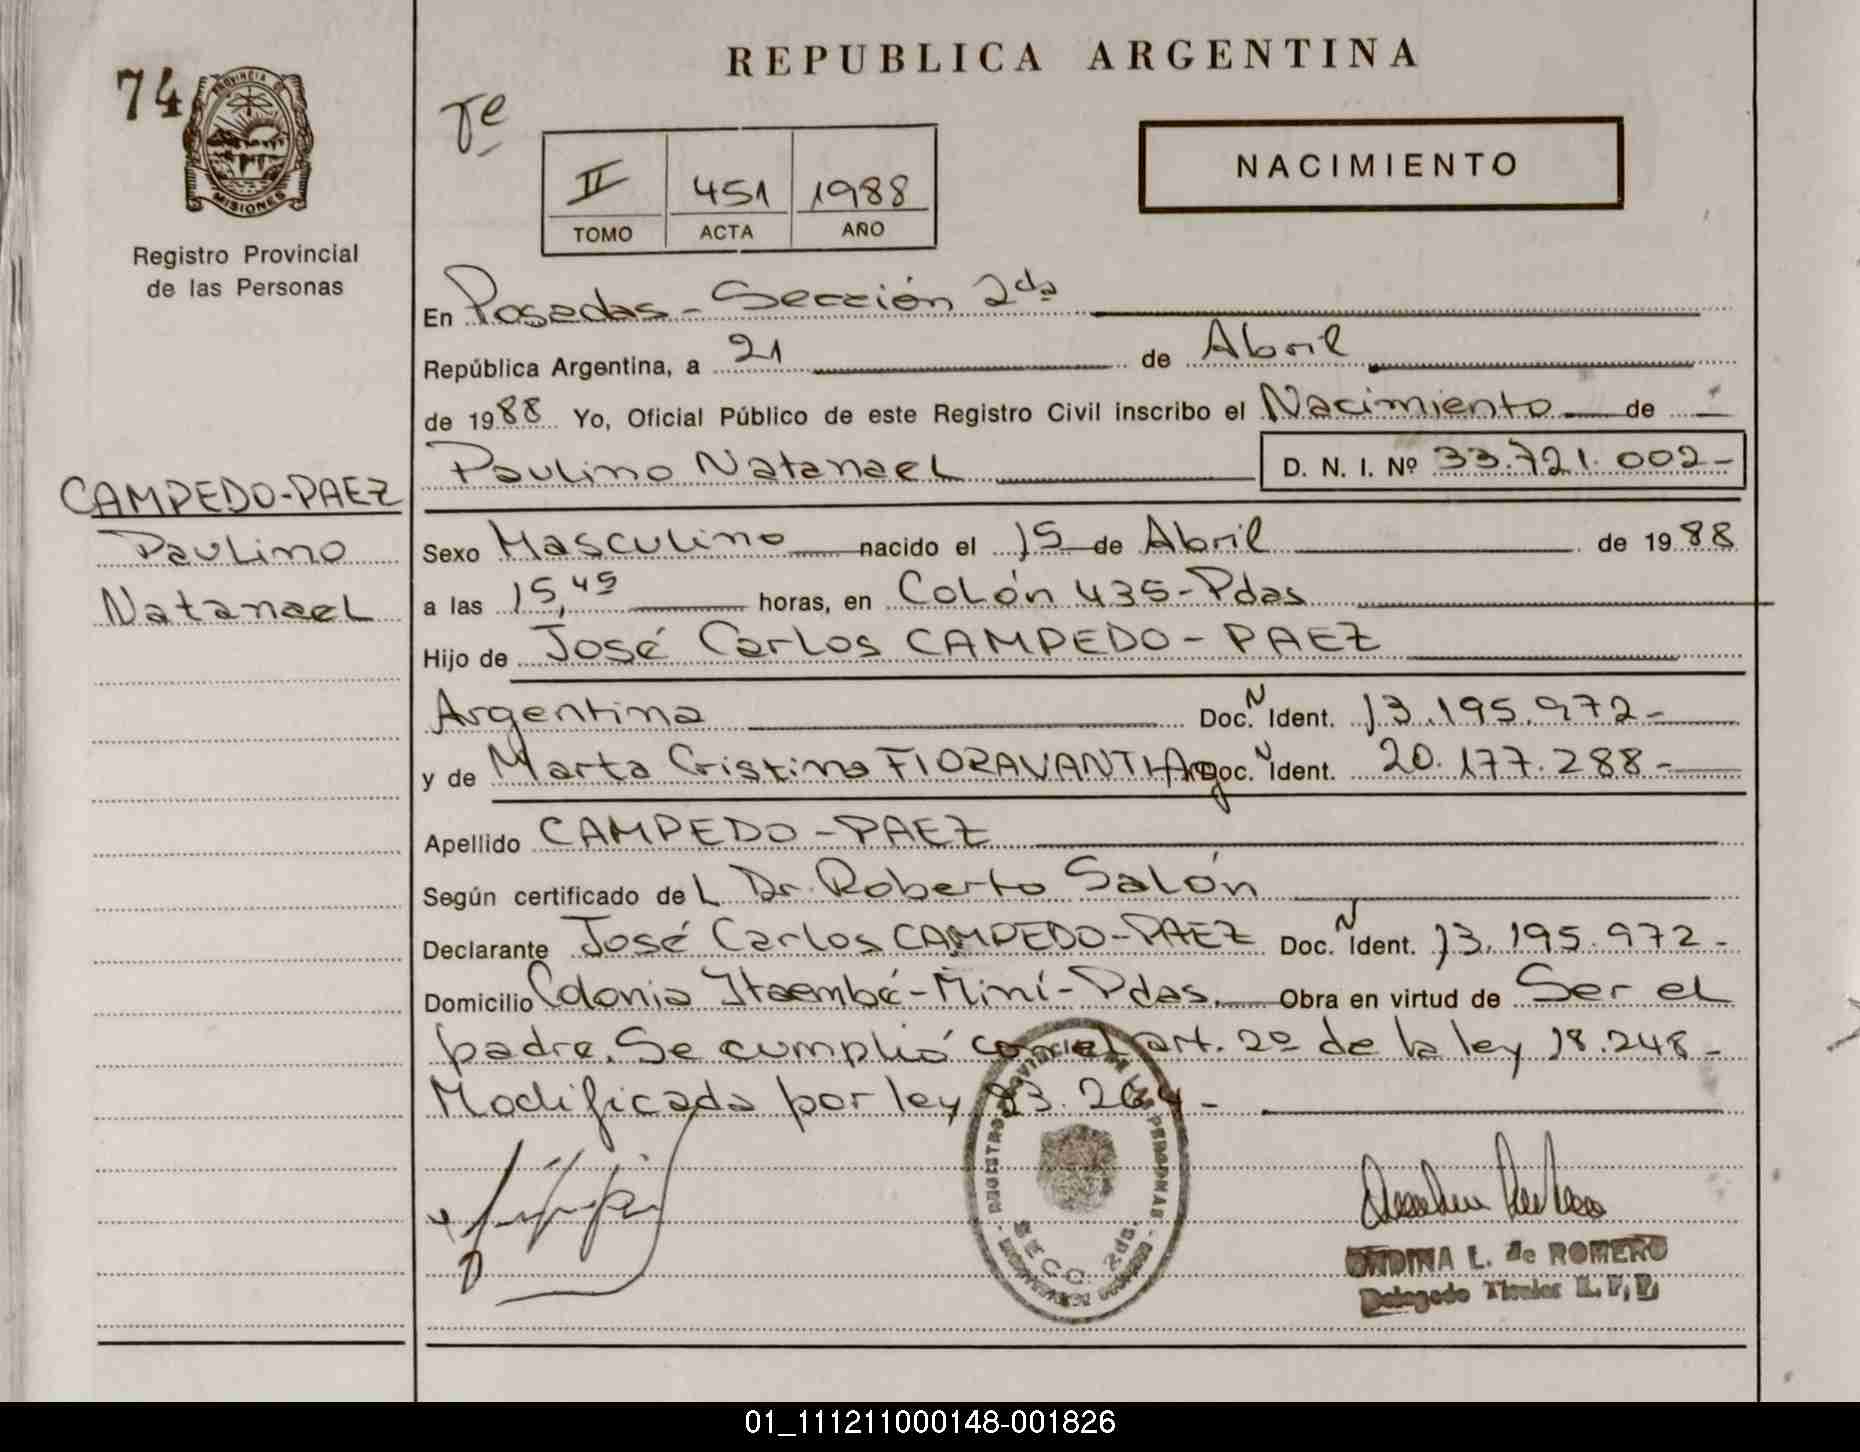 REPUBLICA ARGENTINA
74
PROVINCIA DE
MISIONES
Registro Provincial
de las Personas
II 451 1988
TOMO ACTA AÑO
NACIMIENTO
En Posadas - Sección 2da
República Argentina, a 21 de Abril
de 1988 Yo, Oficial Público de este Registro Civil inscribo el Nacimiento de
Paulino Natanael D. N. I. Nº 33.721.002-
CAMPEDO-PAEZ
Paulino
Natanael
Sexo Masculino nacido el 15 de Abril de 1988
a las 15,45 horas, en Colón 435-Pdas
Hijo de José Carlos CAMPEDO - PAEZ
Argentina Doc. N Ident. 13.195.972-
y de Marta Cristina FIORAVANTI-Arg Doc. N Ident. 20.177.288-
Apellido CAMPEDO-PAEZ
Según certificado del Dr. Roberto Salón
Declarante José Carlos CAMPEDO-PAEZ Doc. N Ident. 13.195.972-
Domicilio Colonia Itaembé-Miní-Pdas. Obra en virtud de Ser el
padre. Se cumplió con el art. 2º de la ley 18.248-
Modificada por ley 23.264-
SECC. 2da.
ONDINA L. de ROMERO
Delegado Titular R. P. P.
01_111211000148-001826